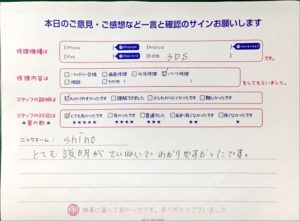 本日のご意見・ご感想など一言と確認のサインお願いします
修理機種は
iPhone
Android
iPad
その他 3DS
修理内容は
バッテリー交換 画面修理 水没修理 パーツ修理
をしてもらいました。
スタッフの説明は
わかりやすかったです 理解できました 少しわかりにくかったです 難しかったです
スタッフの対応は
★星の数★
とても良かったです 良かったです 普通でした あまり良くなかったです 良くなかったです
★★★★★ ★★★★ ★★★ ★★ ★
ニックネーム: shino
とても説明がていねいでわかりやすかったです。
ありがとうございました